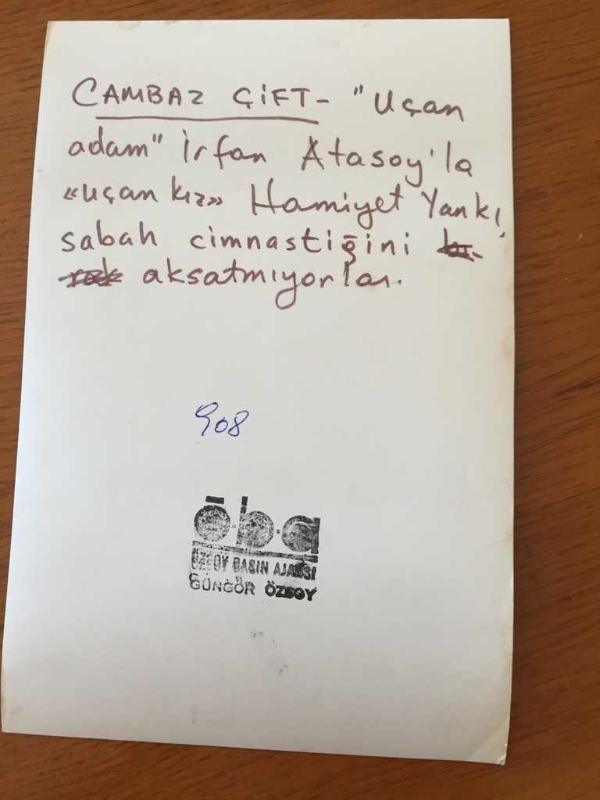 CAMBAZ ÇİFT- "Uçan
adam" İrfan Atasoy'la
«uçan kız» Hamiyet Yankı,
sabah cimnastiğini
aksatmıyorlar.
908
ö.b.a
ÖZSOY BASIN AJANSI
GÜNGÖR ÖZSOY